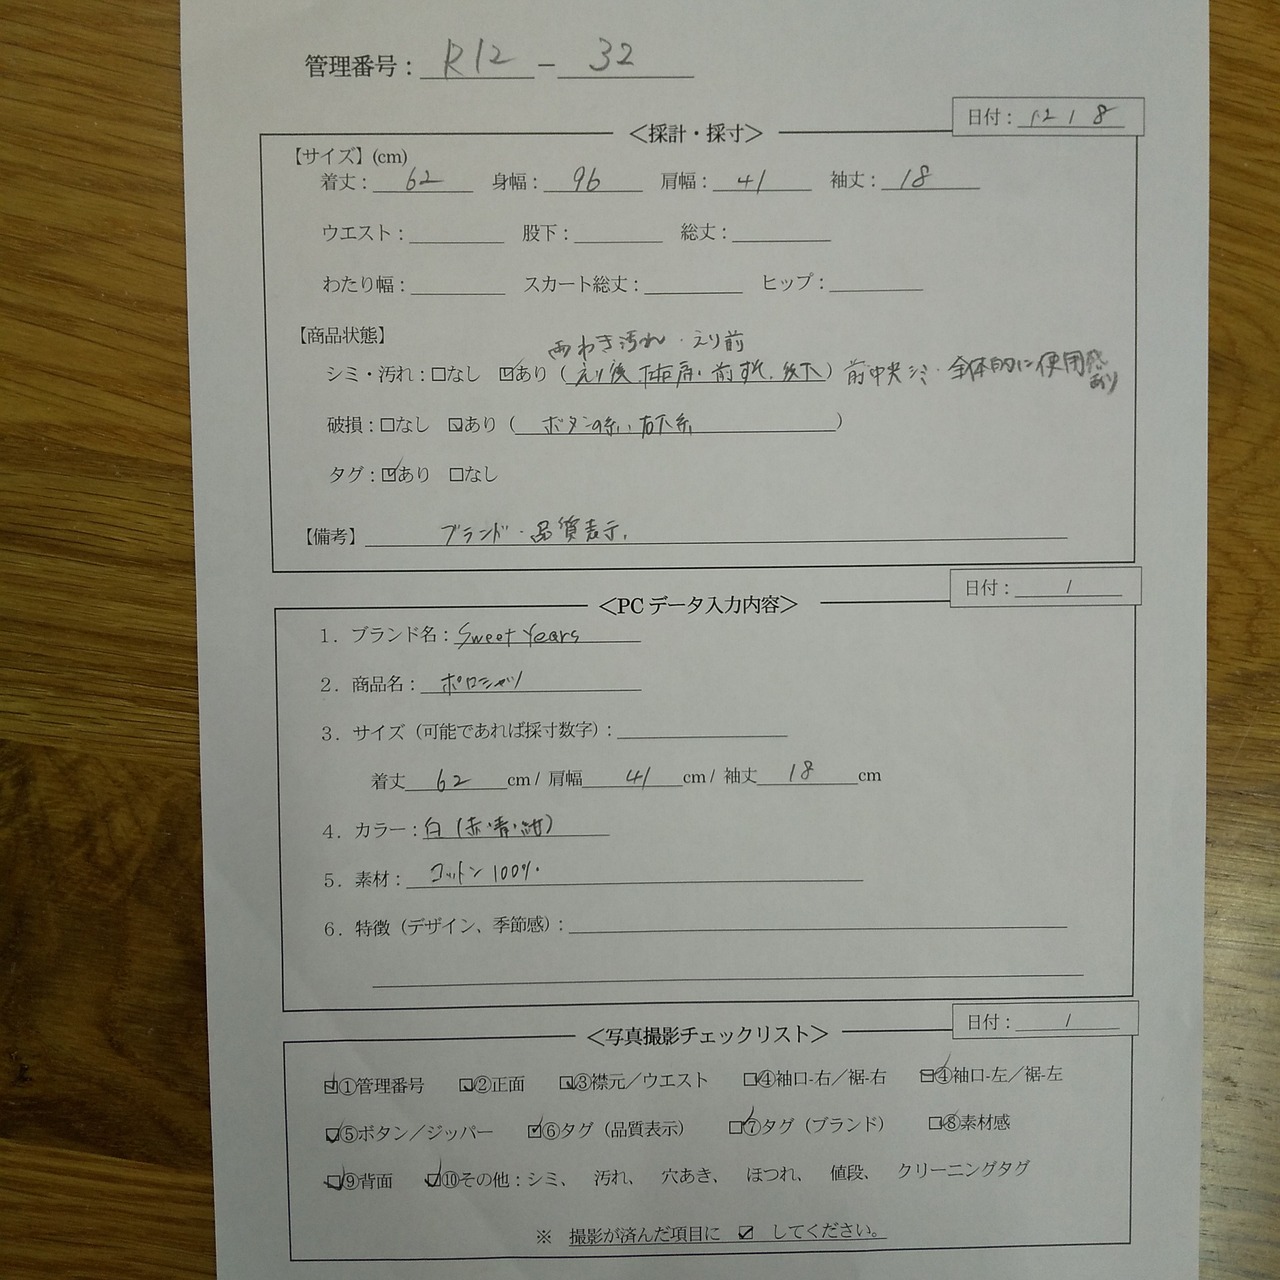 管理番号：R12 － 32
日付：12 / 8
＜採計・採寸＞
【サイズ】(cm)
着丈：62 身幅：96 肩幅：41 袖丈：18
ウエスト： 股下： 総丈：
わたり幅： スカート総丈： ヒップ：
【商品状態】
両わき汚れ・えり前
シミ・汚れ：□なし ☑あり（えり後、右肩、前すそ、）前中央シミ・全体的に使用感あり
破損：□なし ☑あり（ボタンの糸、右下糸）
タグ：☑あり □なし
【備考】ブランド・品質表示、
日付： /
＜PC データ入力内容＞
1．ブランド名：Sweet Years
2．商品名：ポロシャツ
3．サイズ（可能であれば採寸数字）：
着丈 62 cm / 肩幅 41 cm / 袖丈 18 cm
4．カラー：白（赤・青・紺）
5．素材：コットン100%
6．特徴（デザイン、季節感）：
日付： /
＜写真撮影チェックリスト＞
☑①管理番号 ☑②正面 ☑③襟元／ウエスト □④袖口-右／裾-右 ☑④袖口-左／裾-左
☑⑤ボタン／ジッパー ☑⑥タグ（品質表示） ☑⑦タグ（ブランド） ☑⑧素材感
☑⑨背面 ☑⑩その他：シミ、 汚れ、 穴あき、 ほつれ、 値段、 クリーニングタグ
※ 撮影が済んだ項目に ☑ してください。